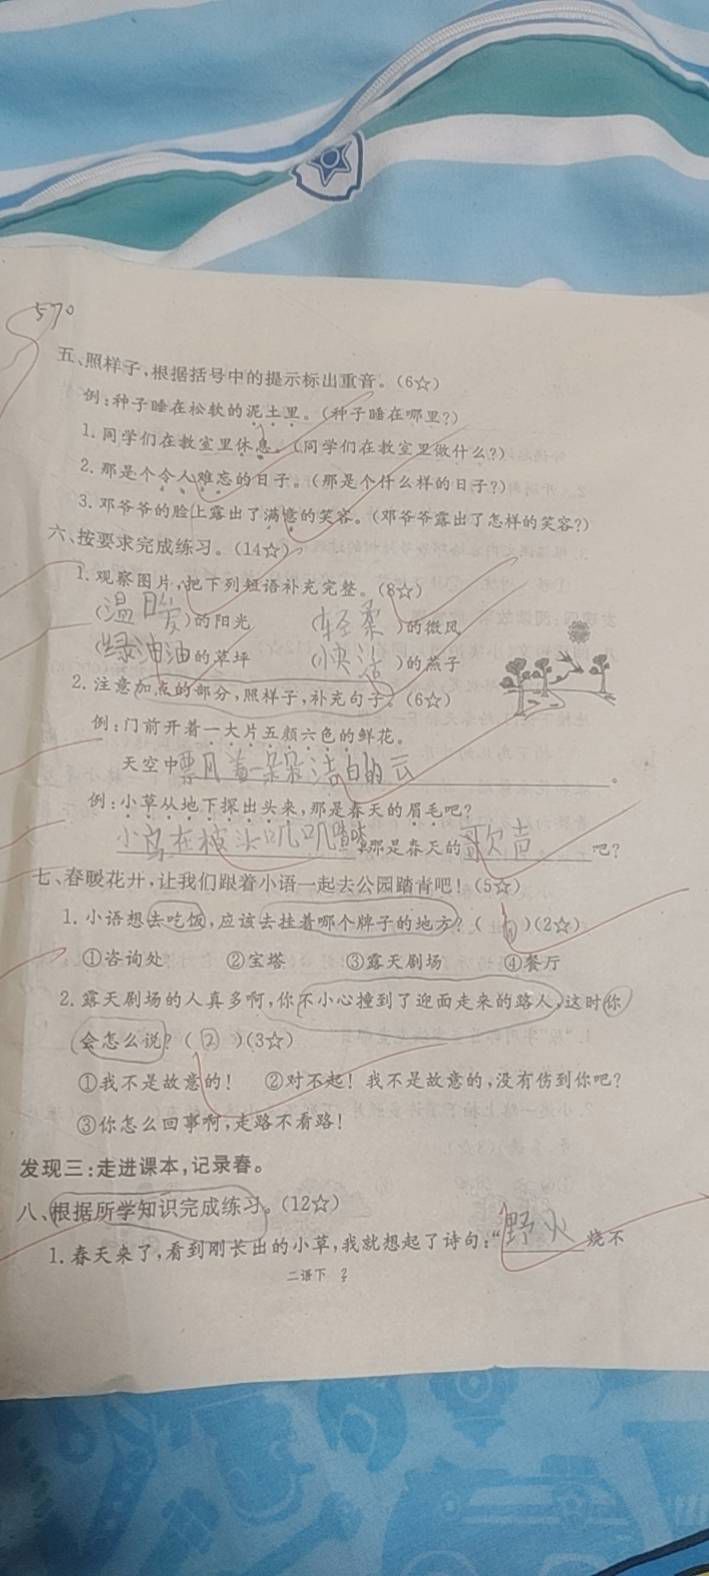 570
五、照样子,根据括号中的提示标出重音。(6☆)
例:种子睡在松软的泥土里。(种子睡在哪里?)
1. 同学们在教室里休息。(同学们在教室里做什么?)
2. 那是个令人难忘的日子。(那是个什么样的日子?)
3. 邓爷爷的脸上露出了满意的笑容。(邓爷爷露出了怎样的笑容?)
六、按要求完成练习。(14☆)
1. 观察图片,把下列短语补充完整。(8☆)
(温暖)的阳光 (轻柔)的微风
(绿油油)的草坪 (快活)的燕子
2. 注意加点的部分,照样子,补充句子。(6☆)
例:门前开着一大片五颜六色的鲜花。
天空中飘着一朵朵洁白的云。
例:小草从地下探出头来,那是春天的眉毛吧?
小鸟在枝头叽叽喳喳,那是春天的歌声吧?
七、春暖花开,让我们跟着小语一起去公园踏青吧!(5☆)
1. 小语想去吃饭,应该去挂着哪个牌子的地方?( )(2☆)
①咨询处 ②宝塔 ③露天剧场 ④餐厅
2. 露天剧场的人真多啊,你不小心撞到了迎面走来的路人,这时你
会怎么说?(②)(3☆)
①我不是故意的! ②对不起!我不是故意的,没有伤到你吧?
③你怎么回事啊,走路不看路!
发现三:走进课本,记录春。
八、根据所学知识完成练习。(12☆)
1. 春天来了,看到刚长出的小草,我就想起了诗句:“野火烧不
二语下 2